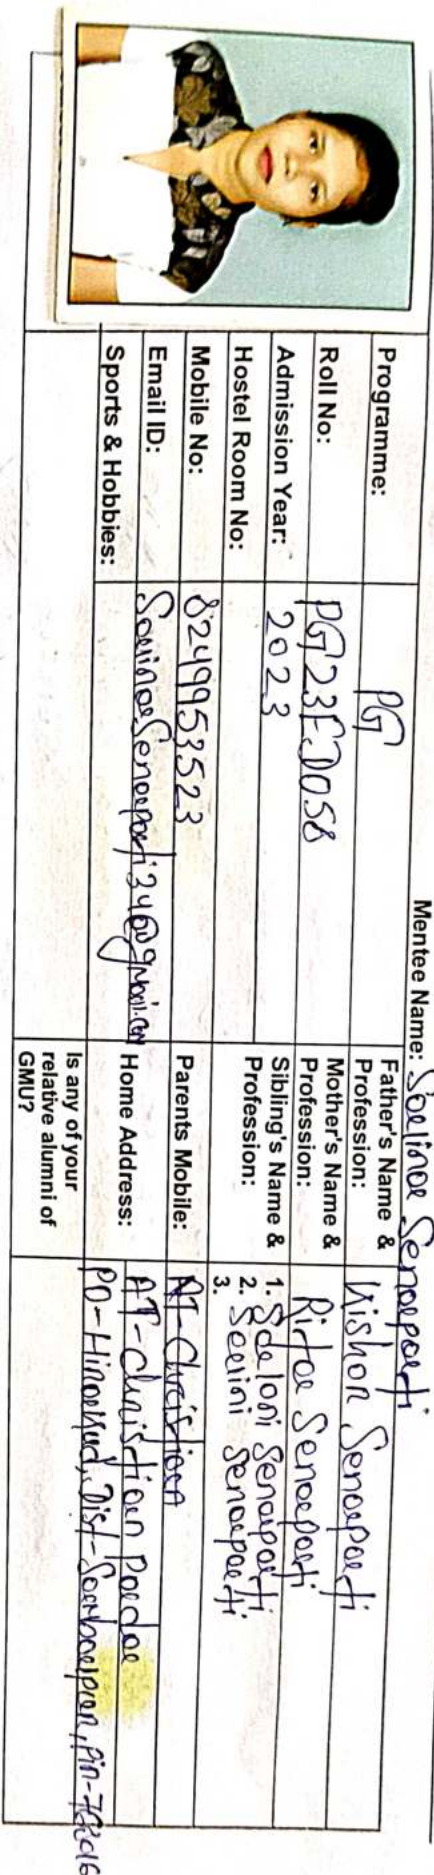 Mentee Name: Soelinoe Senoepoeti
Programme: PG
Father's Name & Profession: Kishor Senoepoeti
Roll No: PG23EDO58
Mother's Name & Profession: Ritoe Senoepoeti
Admission Year: 2023
Sibling's Name & Profession: 1. Soeloni Senoepoeti
2. Seeini Senoepoeti
3.
Hostel Room No:
Mobile No: 8249953523
Parents Mobile: AT-Christioen
Email ID:
Home Address: AT-Christioen Poedoe
PO-Hiroekud, Dist-Soemboelpoer, Pin-768016
Sports & Hobbies:
Is any of your relative alumni of GMU?